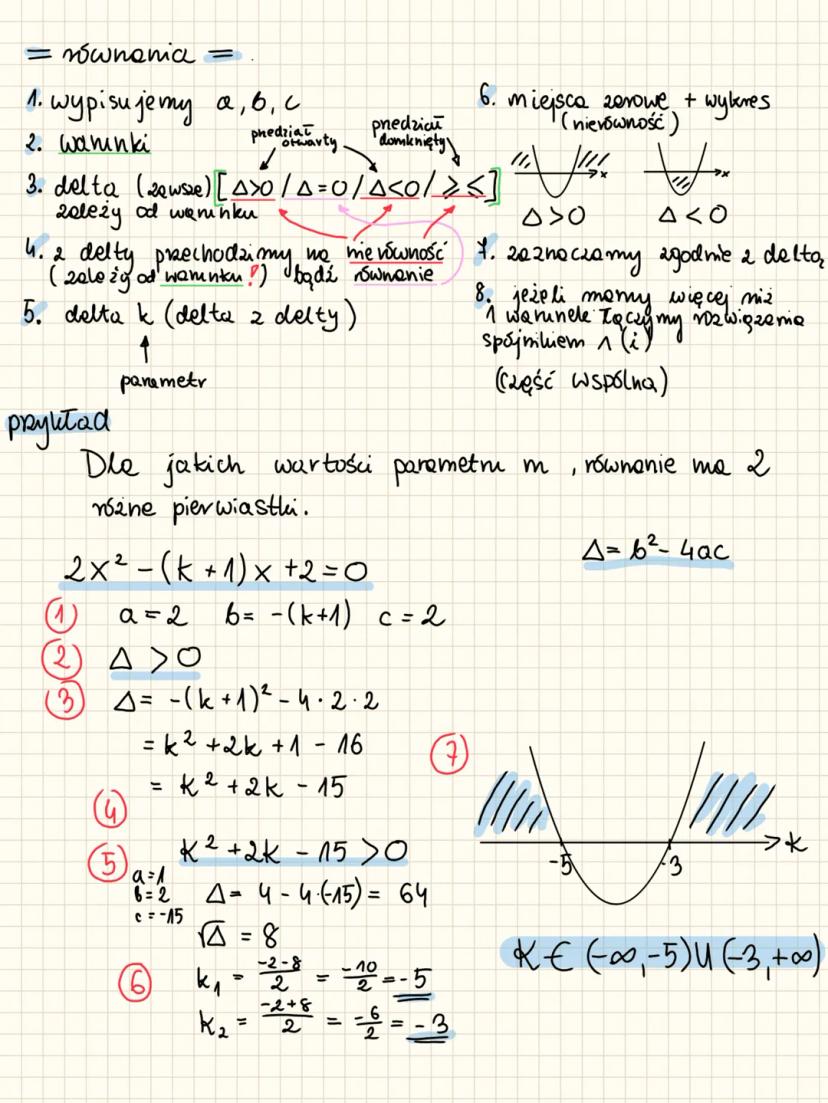 = równania =
1. wypisujemy a, b, c
2. warunki
przedział otwarty
przedział domknięty
3. delta (zawsze) [Δ>0 / Δ=0 / Δ<0 / ⩾ ⩽]
zależy od warunku
4. z delty przechodzimy na nierówność
(zależy od warunku!) bądź równanie
5. delta k (delta z delty)
parametr
6. miejsca zerowe + wykres
(nierówność)
x
x
Δ>0 Δ<0
7. zaznaczamy zgodnie z deltą
8. jeżeli mamy więcej niż
1 warunek łączymy rozwiązania
spójnikiem ∧ (i)
(część wspólna)
przykład
Dla jakich wartości parametru m, równanie ma 2
różne pierwiastki.
Δ= b²- 4ac
2x² -(k+1)x +2=0
1 a=2 b= -(k+1) c=2
2 Δ >0
3 Δ= -(k+1)² - 4·2·2
= k² +2k +1 - 16
= k² +2k - 15
4
5 k² +2k - 15 >0
a=1
b=2
c=-15
Δ= 4 - 4·(-15) = 64
√Δ = 8
6 k₁ = -2-8/2 = -10/2 = -5
k₂ = -2+8/2 = -6/2 = -3
7
-5 -3 k
K∈ (-∞,-5)∪(-3,+∞)